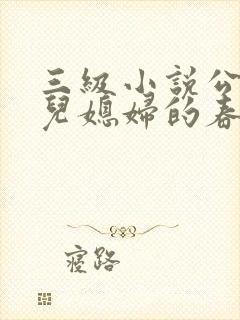 三級小說公
兒媳婦的春
寢路